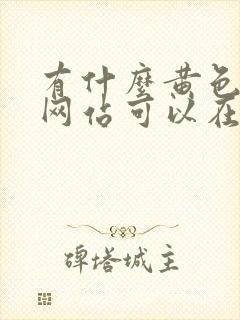 有什麼黄色
网站可以在
碑塔城主